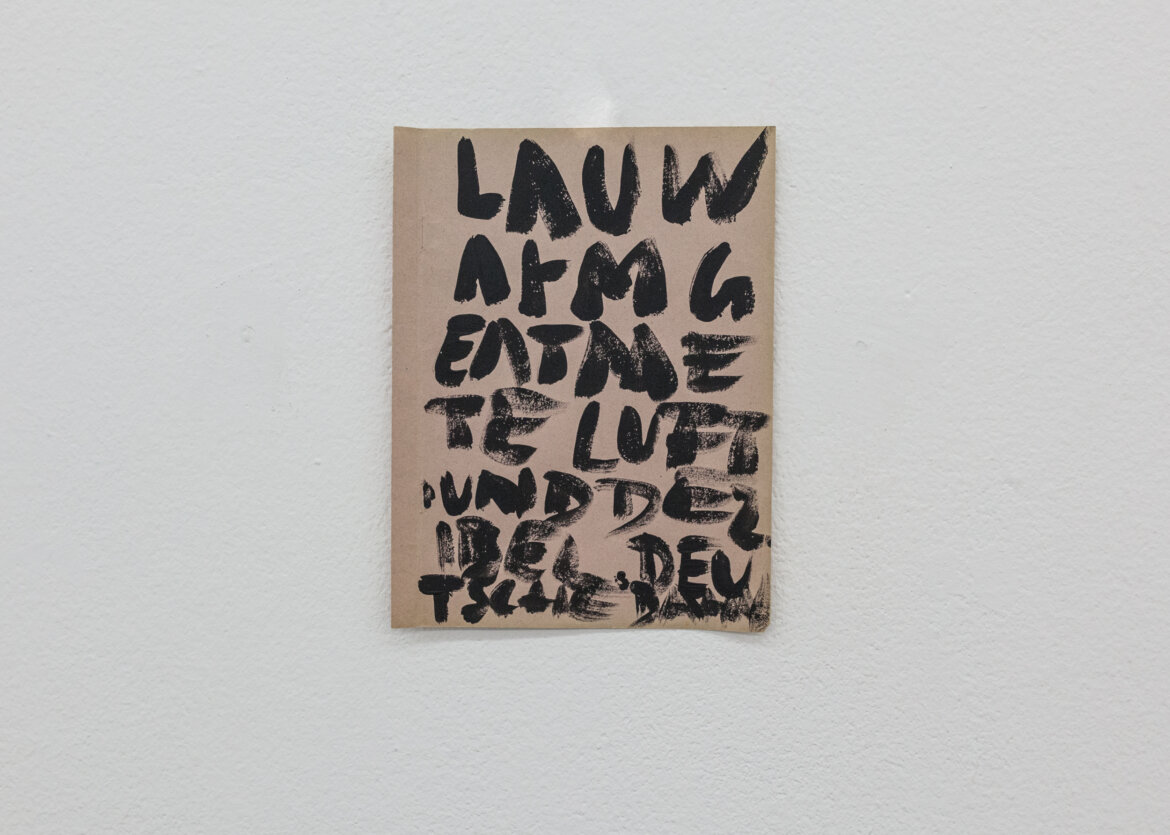 LAUW
ARM G
EATME
TE LUFT
UND DEZ
IBEL DEU
TSCHE BAHN